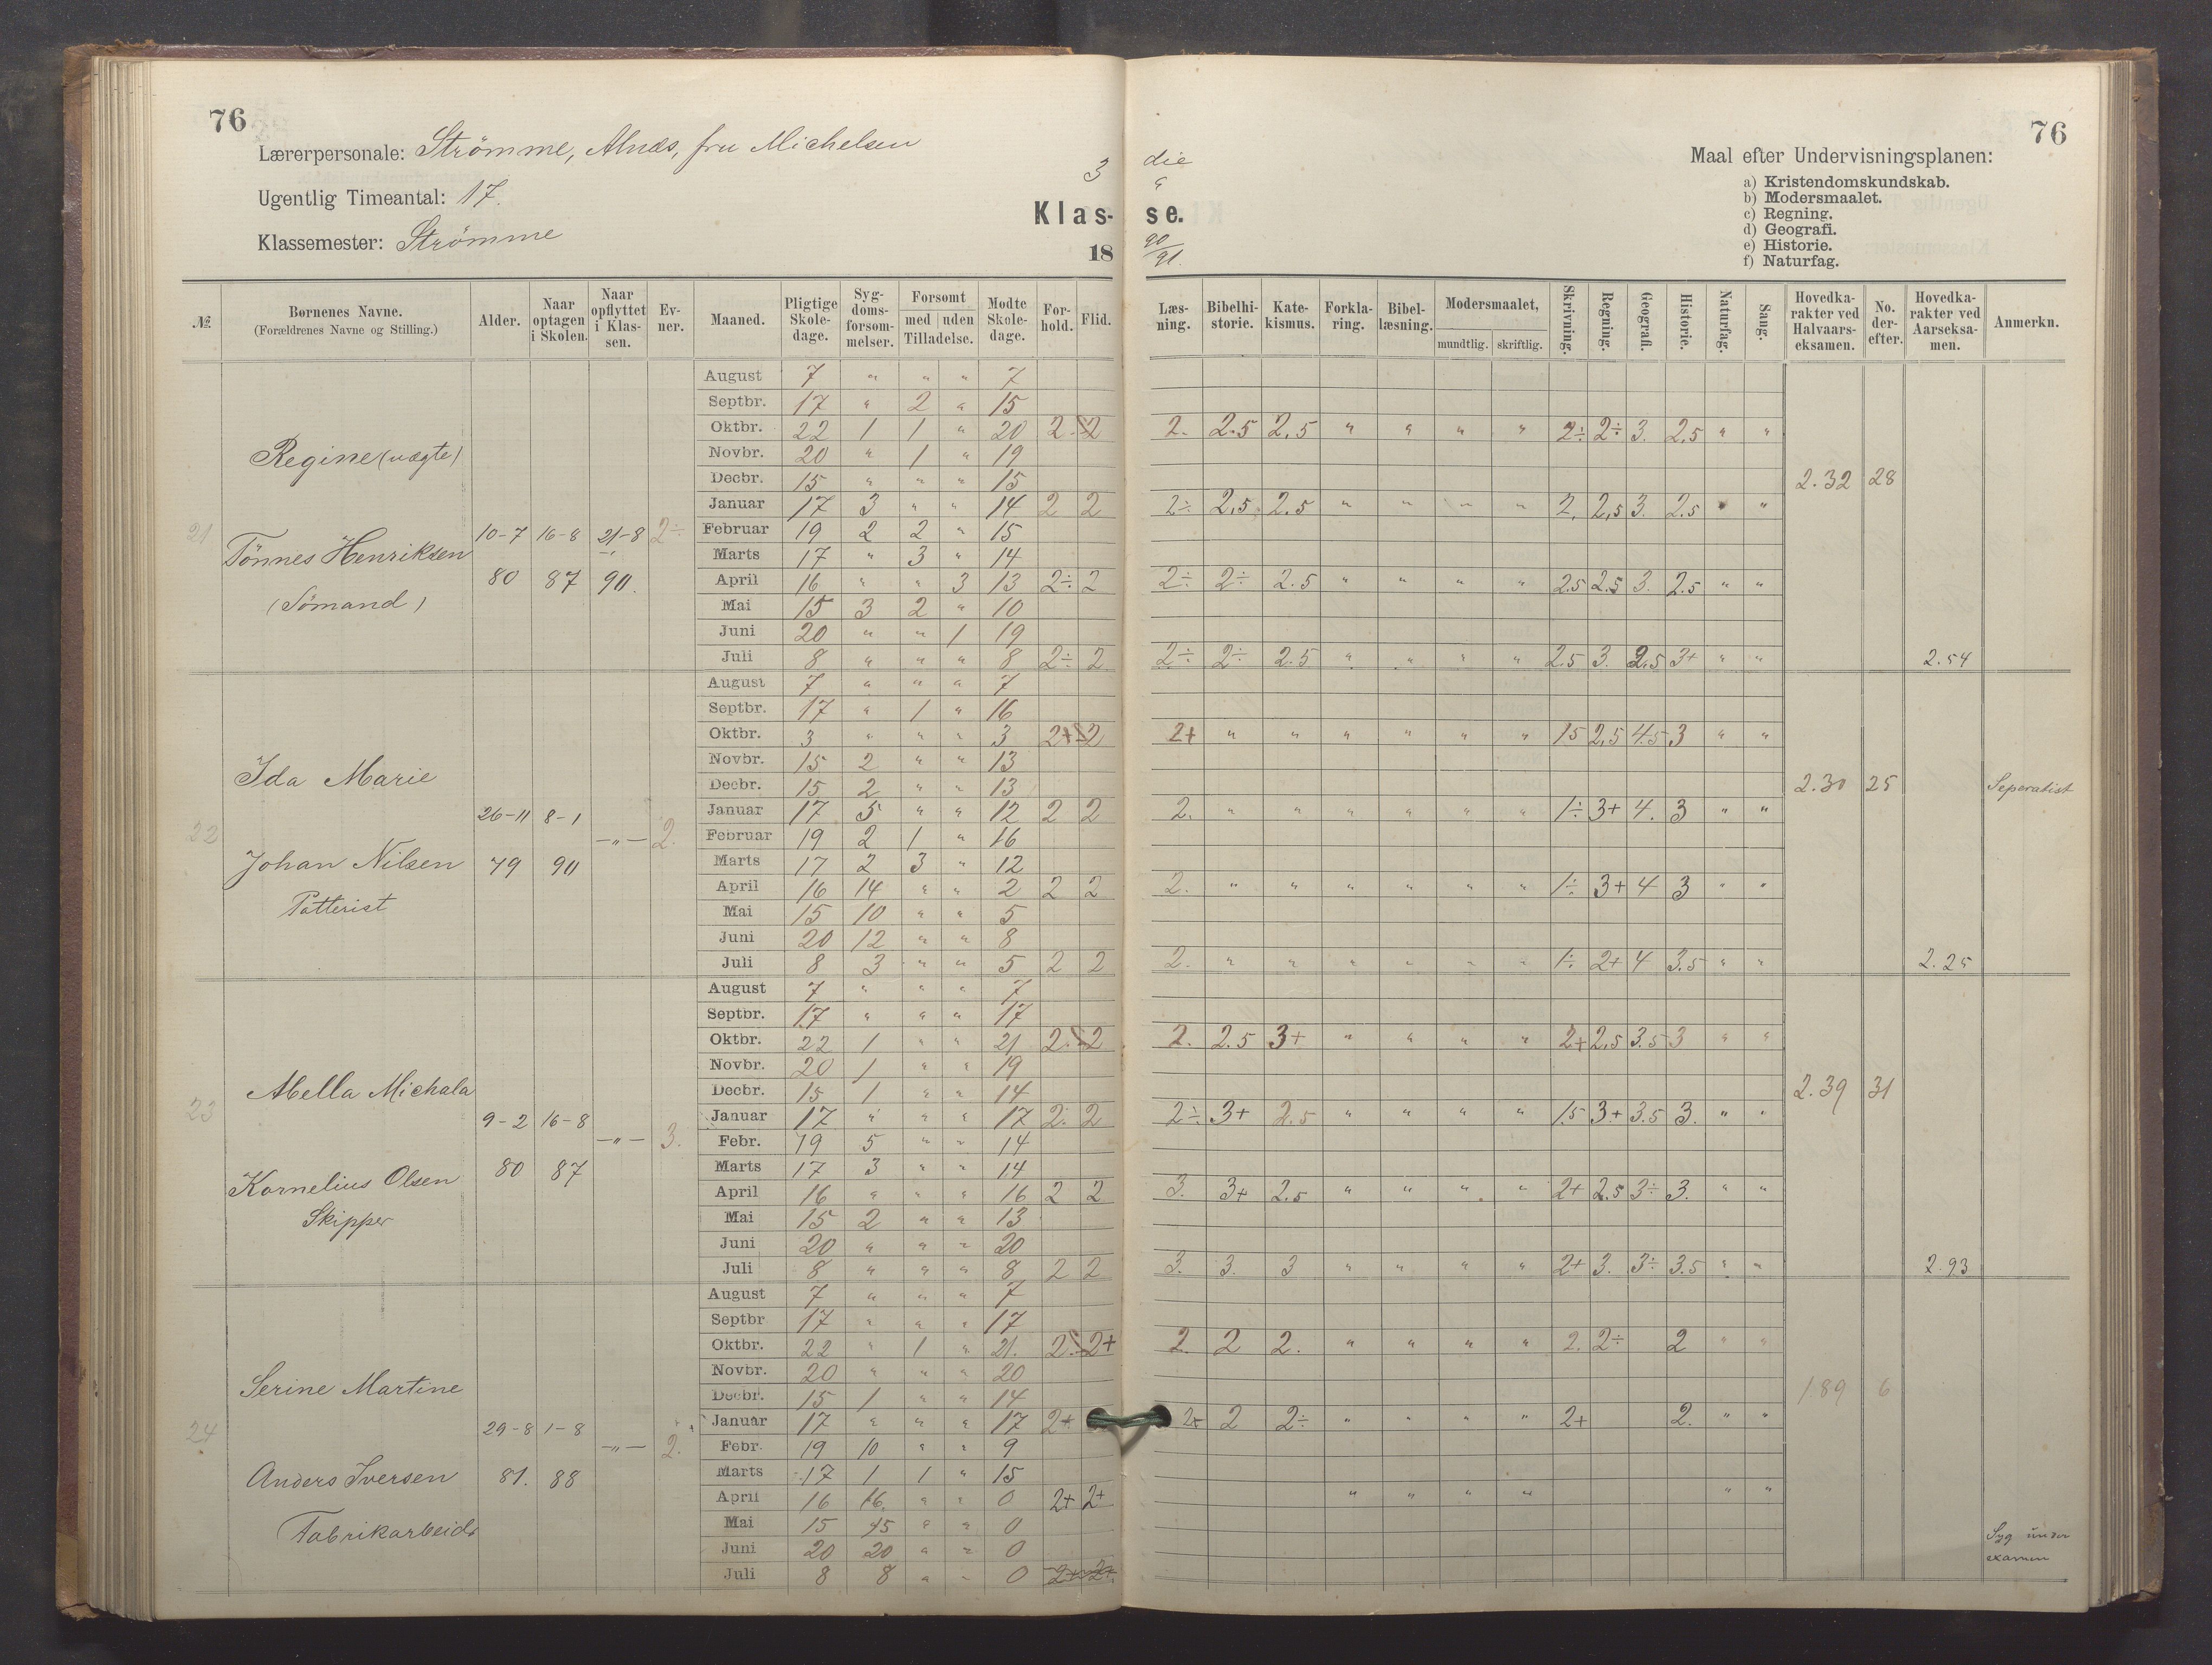 76
Lærerpersonale: Strömme, Alnæs, fru Michelsen
Ugentlig Timeantal: 17.
Klassemester: Strömme
3 die
Klas- se.
18 90/91.
76
Maal efter Undervisningsplanen:
a) Kristendomskundskab.
b) Modersmaalet.
c) Regning.
d) Geografi.
e) Historie.
f) Naturfag.
No. | Børnenes Navne. (Forældrenes Navne og Stilling.) | Alder. | Naar optagen i Skolen. | Naar opflyttet i Klassen. | Evner. | Maaned. | Pligtige Skoledage. | Sygdomsforsommelser. | Forsomt med Tilladelse. | uden Tilladelse. | Modte Skoledage. | Forhold. | Flid. | Læsning. | Bibelhistorie. | Katekismus. | Forklaring. | Bibellæsning. | Modersmaalet, mundtlig. | skriftlig. | Skrivning. | Regning. | Geografi. | Historie. | Naturfag. | Sang. | Hovedkarakter ved Halvaarseksamen. | No. derefter. | Hovedkarakter ved Aarseksamen. | Anmerkn.
21
Regine (uægte)
Tönnes Henriksen
(Sömand)
10-7 80 | 16-8 87 | 21-8 90. | 2÷
August 7 " " " 7
Septbr. 17 " 2 " 15
Oktbr. 22 1 1 " 20 2. 2 2. 2.5 2.5 " " " " 2÷ 2÷ 3. 2.5 " "
Novbr. 20 " 1 " 19
Decbr. 15 " " " 15 2.32 28
Januar 17 3 " " 14 2 2 2÷ 2.5 2.5 " " " " 2. 2,5 3. 2.5 " "
Februar 19 2 2 " 15
Marts 17 " 3 " 14
April 16 " " 3 13 2÷ 2 2÷ 2÷ 2.5 " " " " 2.5 2.5 3. 2.5 " "
Mai 15 3 2 " 10
Juni 20 " " 1 19
Juli 8 " " " 8 2÷ 2 2÷ 2÷ 2.5 " " " " 2.5 3. 2.5 3+ " " 2.54
22
Ida Marie
Johan Nilsen
Potterist
26-11 79 | 8-1 90 | —"— | 2.
August 7 " " " 7
Septbr. 17 " 1 " 16
Oktbr. 3 " " " 3 2+ 2 2+ " " " " " " 1.5 2,5 4.5 3 " "
Novbr. 15 2 " " 13
Decbr. 15 2 " " 13 2.30 25 Seperatist
Januar 17 5 " " 12 2 2 2. " " " " " " 1÷ 3+ 4. 3 " "
Februar 19 2 1 " 16
Marts 17 2 3 " 12
April 16 14 " " 2 2 2 2. " " " " " " 1÷ 3+ 4 3 " "
Mai 15 10 " " 5
Juni 20 12 " " 8
Juli 8 3 " " 5 2 2 2. " " " " " " 1÷ 2+ 4 3.5 " " 2.25
23
Abella Michala
Kornelius Olsen
Skipper
9-2 80 | 16-8 87 | —"— | 3.
August 7 " " " 7
Septbr. 17 " " " 17
Oktbr. 22 1 " " 21 2. 2 2. 2.5 3+ " " " " 2+ 2,5 3.5 3 " "
Novbr. 20 1 " " 19
Decbr. 15 1 " " 14 2.39 31
Januar 17 " " " 17 2. 2 2÷ 3+ 2.5 " " " " 1.5 3+ 3.5 3. " "
Febr. 19 5 " " 14
Marts 17 3 " " 14
April 16 " " " 16 2 2 3. 3+ 2.5 " " " " 2+ 2.5 3÷ 3. " "
Mai 15 2 " " 13
Juni 20 " " " 20
Juli 8 " " " 8 2 2 3. 3. 3 " " " " 2+ 3. 3÷ 3.5 " " 2.93
24
Serine Martine
Anders Iversen
Fabrikarbeid.
29-8 81. | 1-8 88 | —"— | 2.
August 7 " " " 7
Septbr 17 " " " 17
Oktbr. 22 " 1 " 21. 2. 2+ 2. 2 2. " " " " 2. 2÷ 2 " "
Novbr. 20 " " " 20
Decbr. 15 1 " " 14 1.89 6
Januar 17 " " " 17 2+ 2+ 2 2÷ " " " " 2+ 2. " "
Febr. 19 10 " " 9
Marts 17 1 1 " 15
April 16 16. " " 0 2+ 2+ " " " " " "
Mai 15 15 " " 0
Juni 20 20 " " 0
Juli 8 8 " " 0 2+ 2+
Syg under
examen